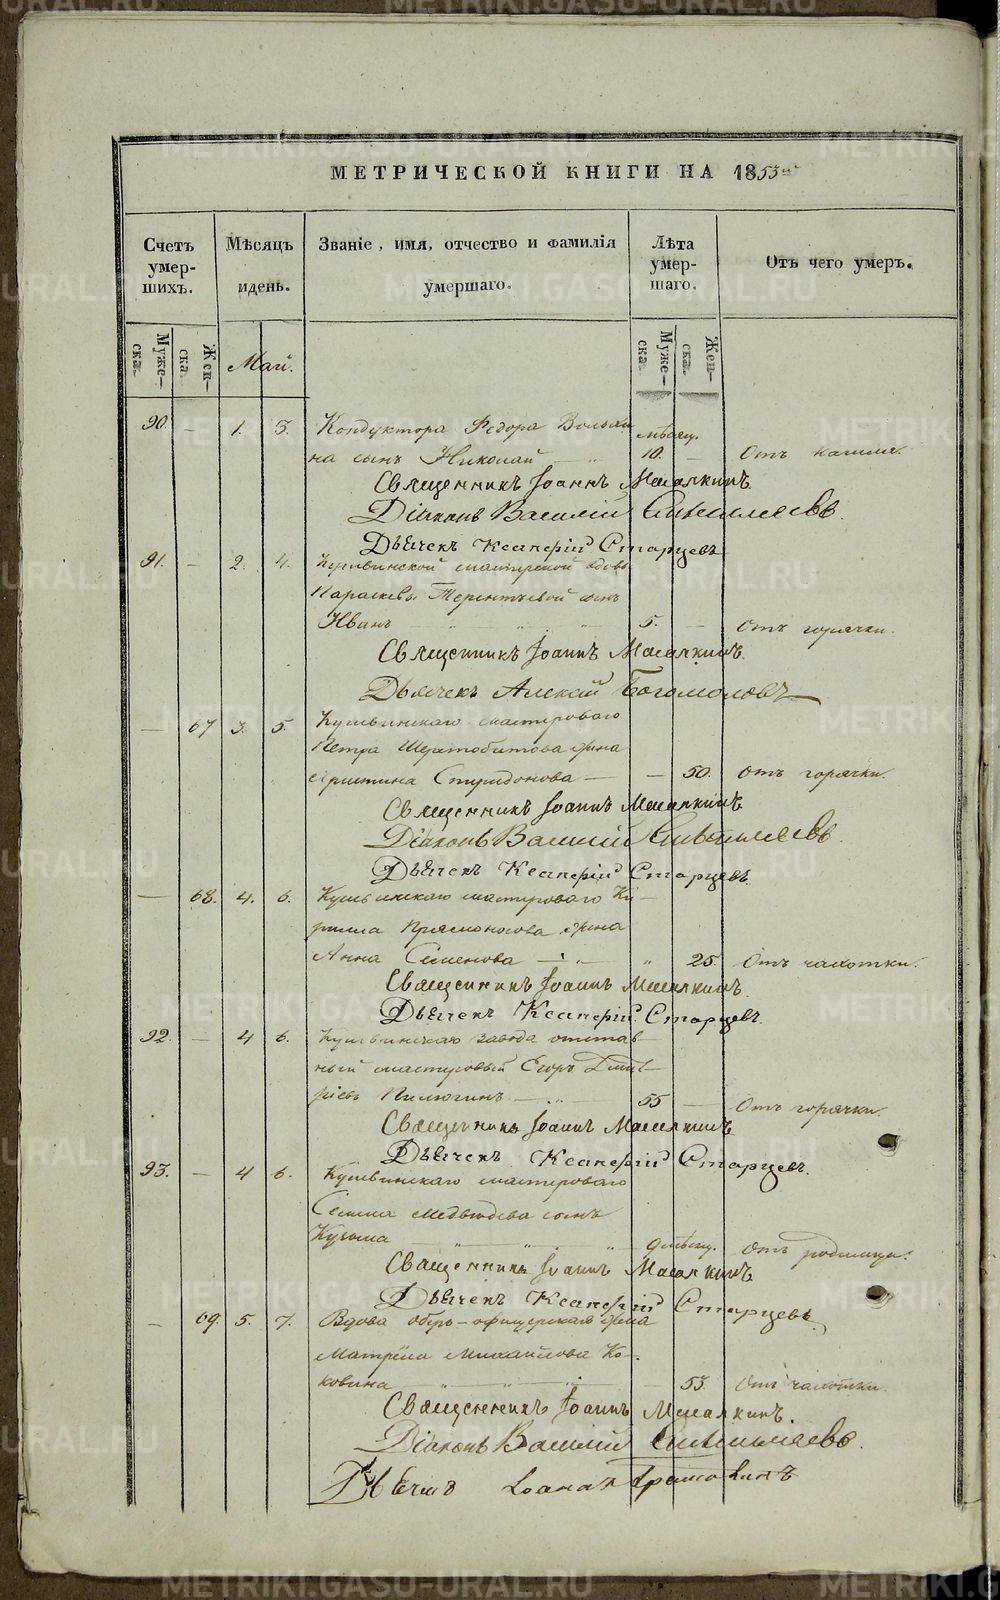 МЕТРИЧЕСКОЙ КНИГИ НА 1853й
Счетъ умер-шихъ.
Мѣсяцъ и день.
Званіе, имя, отчество и фамилія умершаго.
Лѣта умер-шаго.
Отъ чего умеръ.
Муже-ска.
Жен-ска.
Май.
Муже-ска.
Жен-ска.
90. — 1. 3. Кондуктора Ѳедора
мѣсяц.
на сынъ Николай — 10. — Отъ кашля.
Священникъ Іоаннъ Масалкинъ.
Діаконъ Василій
Дьячекъ Ксаверій Старцевъ
91. — 2. 4. Кушвинской мастерской вдовы
Параскевы Терентьевой сынъ
Иванъ 5. — Отъ горячки.
Священникъ Іоаннъ Масалкинъ.
Дьячекъ Алексѣй Богомоловъ
— 67 3. 5. Кушвинскаго мастероваго
Петра жена
Христина Спиридонова — — 50. Отъ горячки.
Священникъ Іоаннъ Масалкинъ
Діаконъ Василій
Дьячекъ Ксаверій Старцевъ.
— 68. 4. 6. Кушвинскаго мастероваго Ки-
рилла Прямоносова жена
Анна Семенова — " 25. Отъ чахотки.
Священникъ Іоаннъ Масалкинъ.
Дьячекъ Ксаверій Старцевъ.
92. — 4 6. Кушвинскаго завода отстав-
ный мастеровый Егоръ Дмит-
ріевъ Пилюгинъ — 55 — Отъ горячки.
Священникъ Іоаннъ Масалкинъ
Дьячекъ Ксаверій Старцевъ.
93. — 4 6. Кушвинскаго мастероваго
Семена Медвѣдева сынъ
Кузьма 9 мѣсяц. Отъ родимца.
Священникъ Іоаннъ Масалкинъ
Дьячекъ Ксаверій Старцевъ.
— 69. 5. 7. Вдова оберъ-офицерская жена
Матрёна Михайлова Ко-
ковина — 53. Отъ чахотки.
Священникъ Іоаннъ Масалкинъ.
Діаконъ Василій
METRIKI.GASO-URAL.RU